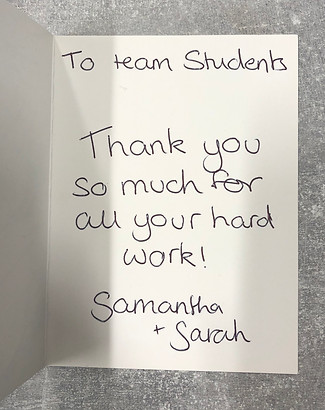 To team Students
Thank you
so much for
all your hard
work!
Samantha
+ Sarah